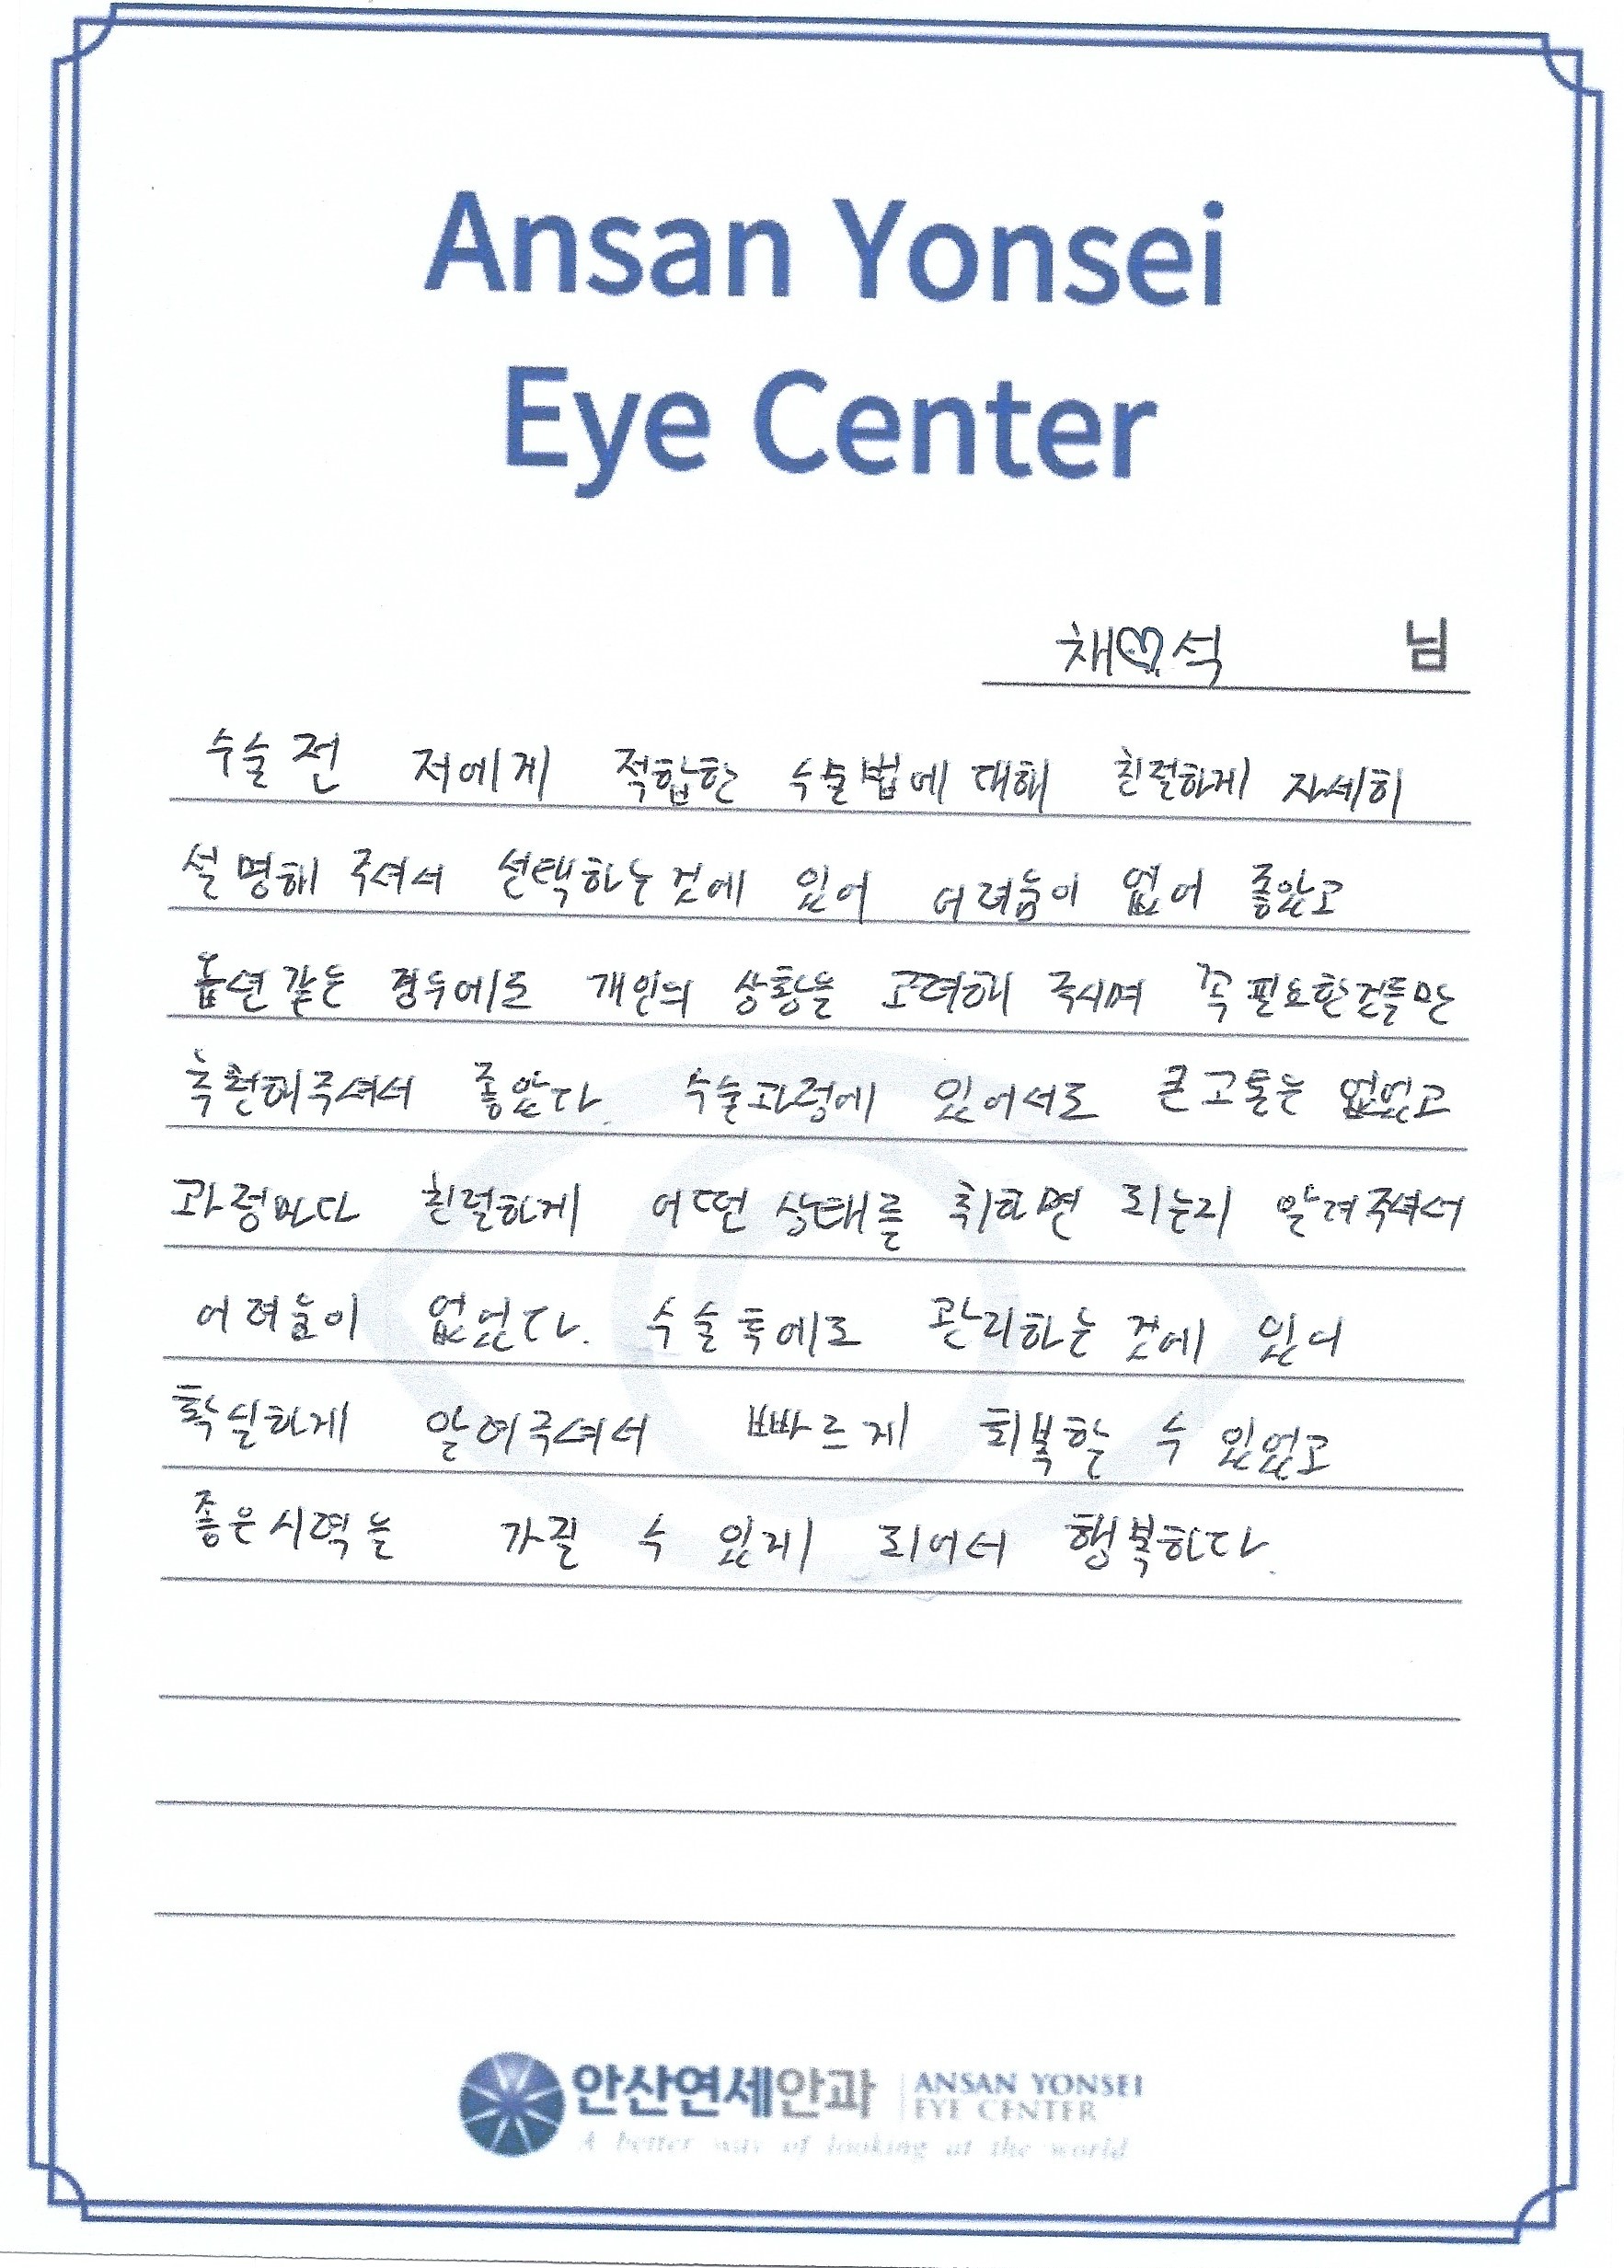 Ansan Yonsei
Eye Center
채♡석 님
수술 전 저에게 적합한 수술법에 대해 친절하게 자세히
설명해 주셔서 선택하는것에 있어 어려움이 없어 좋았고
옵션같은 경우에도 개인의 상황을 고려해 주시며 꼭 필요한것들만
추천해주셔서 좋았다. 수술과정에 있어서도 큰 고통은 없었고
과정마다 친절하게 어떤 상태를 취하면 되는지 알려주셔서
어려움이 없었다. 수술 후에도 관리하는 것에 있어
확실하게 알려주셔서 빠르게 회복할 수 있었고
좋은 시력을 가질 수 있게 되어서 행복하다.
안산연세안과 ANSAN YONSEI
EYE CENTER
A better way of looking at the world